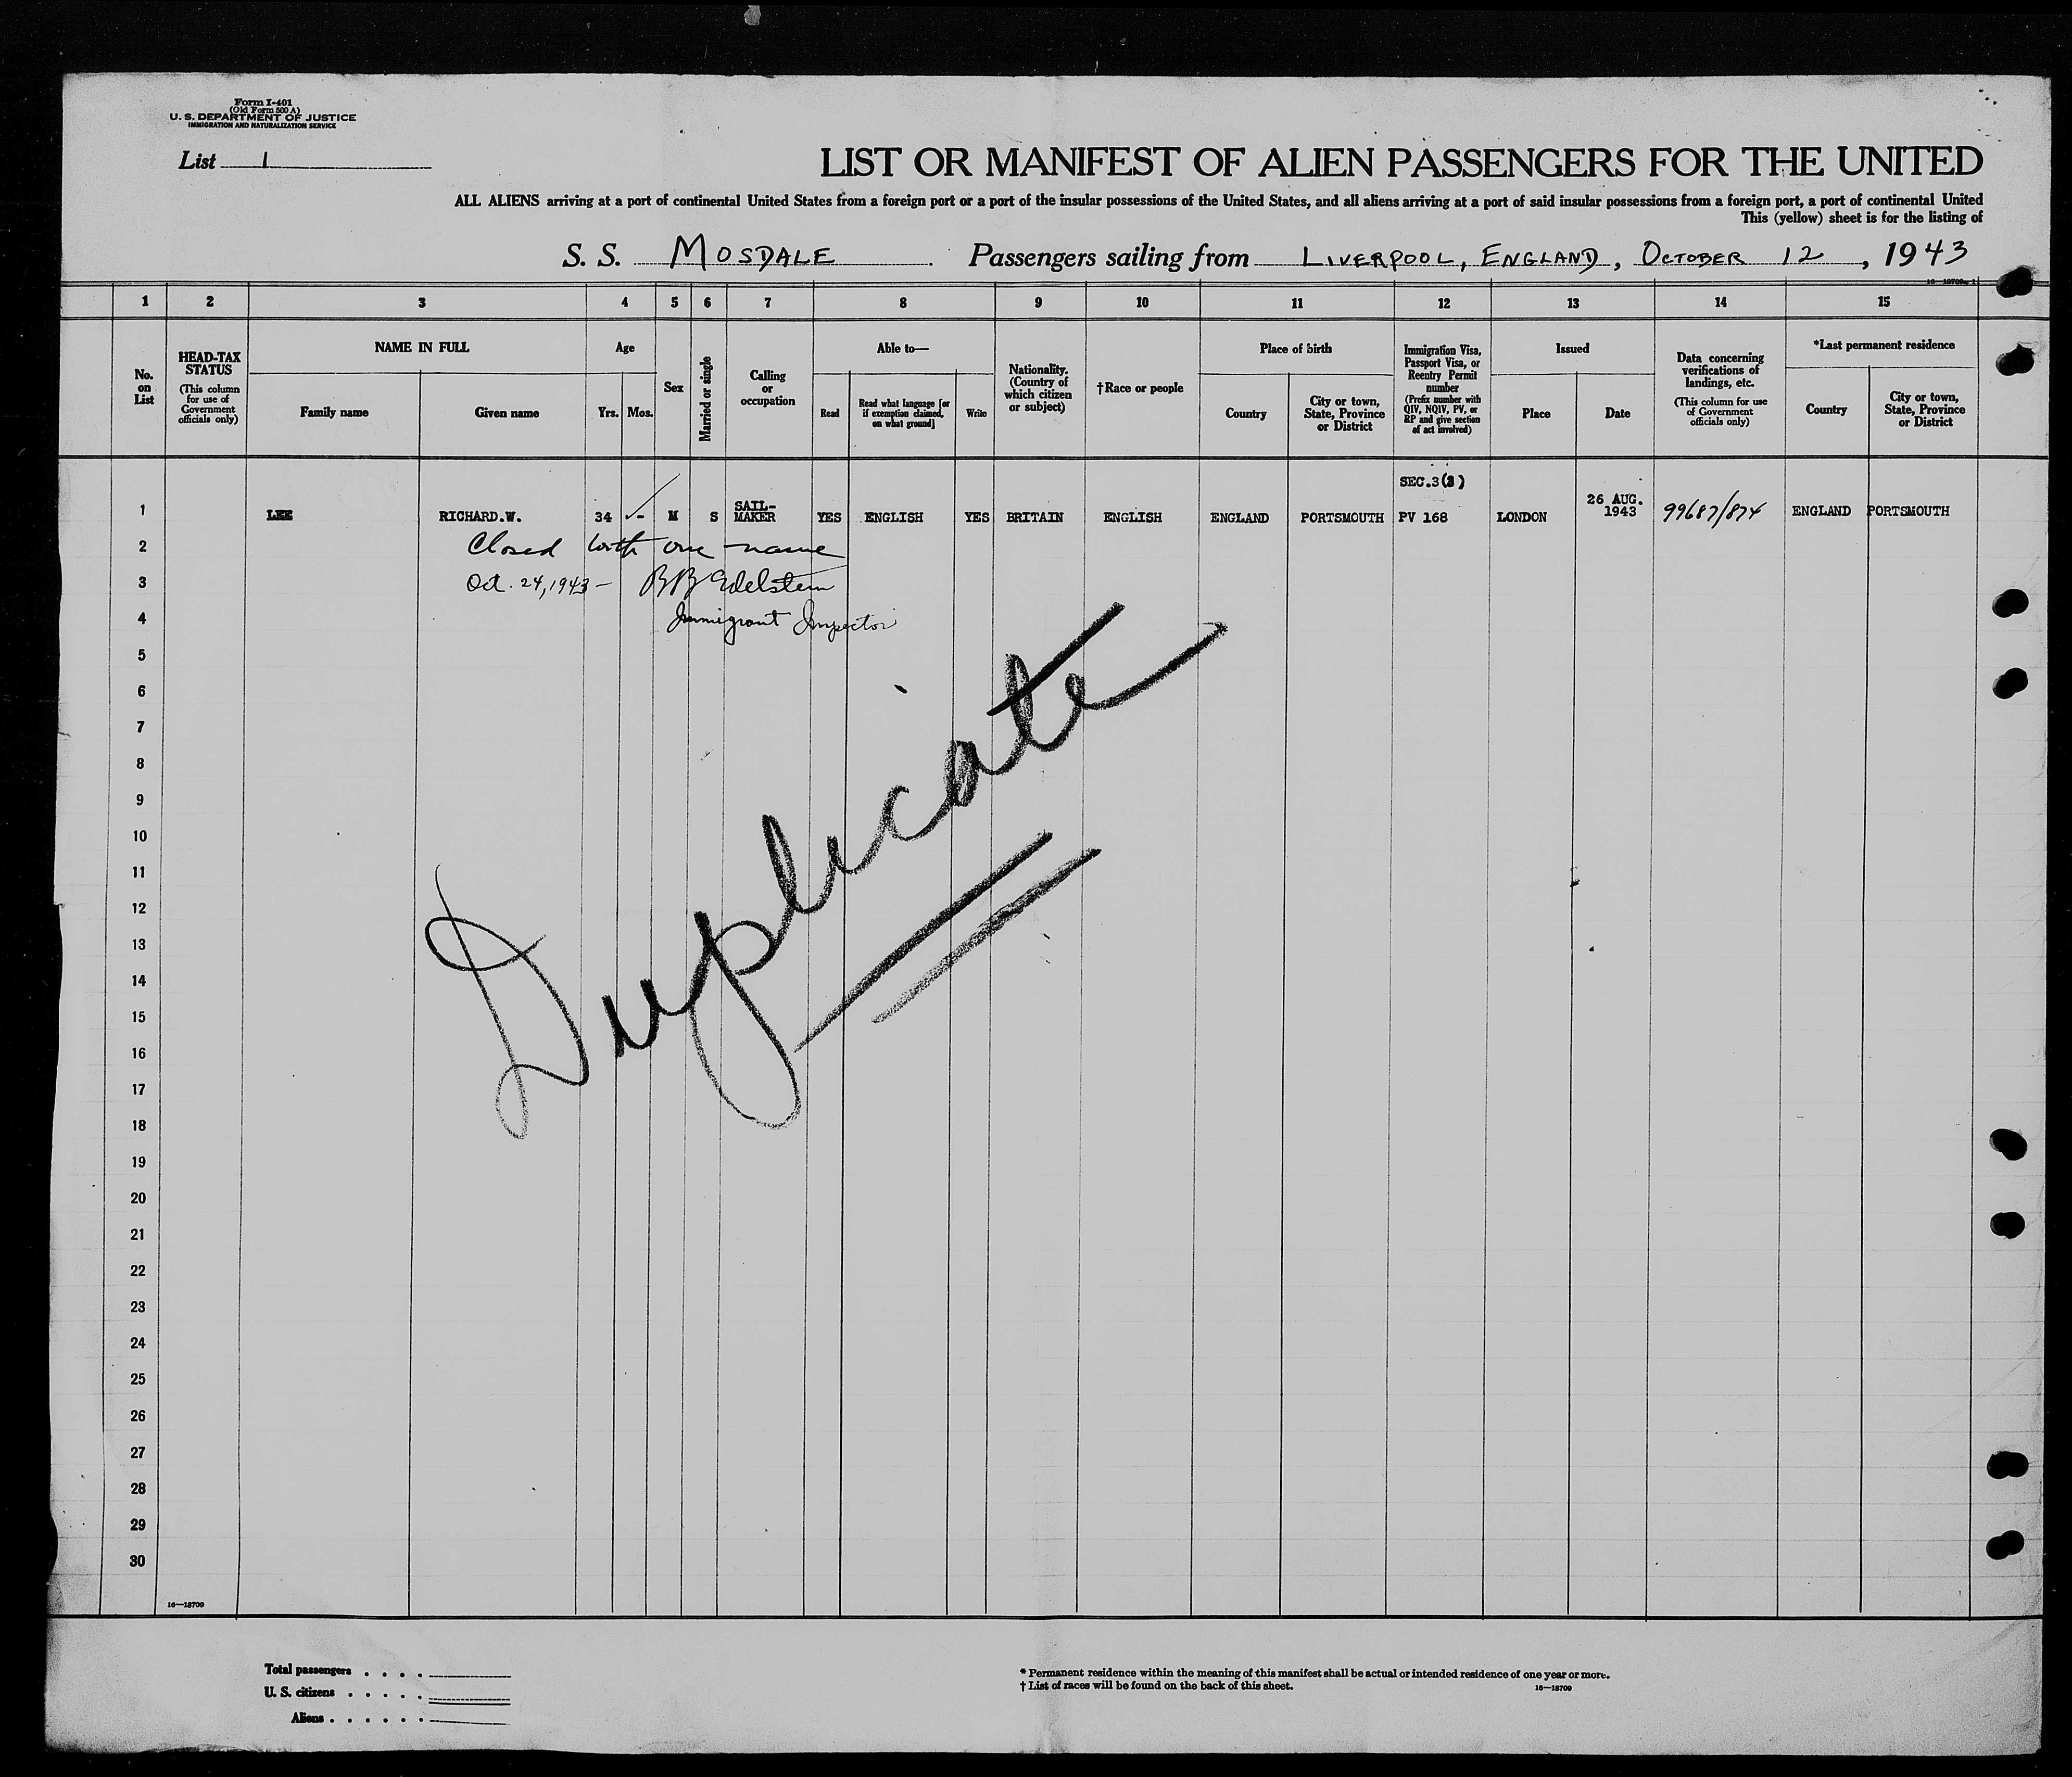 Form I-401
(Old Form 500 A)
U. S. DEPARTMENT OF JUSTICE
IMMIGRATION AND NATURALIZATION SERVICE
List 1
LIST OR MANIFEST OF ALIEN PASSENGERS FOR THE UNITED
ALL ALIENS arriving at a port of continental United States from a foreign port or a port of the insular possessions of the United States, and all aliens arriving at a port of said insular possessions from a foreign port, a port of continental United
This (yellow) sheet is for the listing of
S. S. MOSDALE Passengers sailing from LIVERPOOL, ENGLAND, OCTOBER 12, 1943
1 2 3 4 5 6 7 8 9 10 11 12 13 14 15
No. on List
HEAD-TAX STATUS
(This column for use of Government officials only)
NAME IN FULL
Family name
Given name
Age
Yrs.
Mos.
Sex
Married or single
Calling or occupation
Able to—
Read
Read what language [or if exemption claimed, on what ground]
Write
Nationality. (Country of which citizen or subject)
†Race or people
Place of birth
Country
City or town, State, Province or District
Immigration Visa, Passport Visa, or Reentry Permit number
(Prefix number with QIV, NQIV, PV, or RP and give section of act involved)
Issued
Place
Date
Data concerning verifications of landings, etc.
(This column for use of Government officials only)
*Last permanent residence
Country
City or town, State, Province or District
SEC.3(3)
1 LEE RICHARD.W. 34 - M S SAIL-MAKER YES ENGLISH YES BRITAIN ENGLISH ENGLAND PORTSMOUTH PV 168 LONDON 26 AUG. 1943 99687/874 ENGLAND PORTSMOUTH
2 Closed with one name
3 Oct. 24, 1943 - BB Edelstein
4 Immigrant Inspector
5
6
7
8
9
10
11
12
13
14
15
16
17
18
19
20
21
22
23
24
25
26
27
28
29
30
Duplicate
16—18709
Total passengers . . . .
U. S. citizens . . . . .
Aliens . . . . . .
* Permanent residence within the meaning of this manifest shall be actual or intended residence of one year or more.
† List of races will be found on the back of this sheet.
16—18709